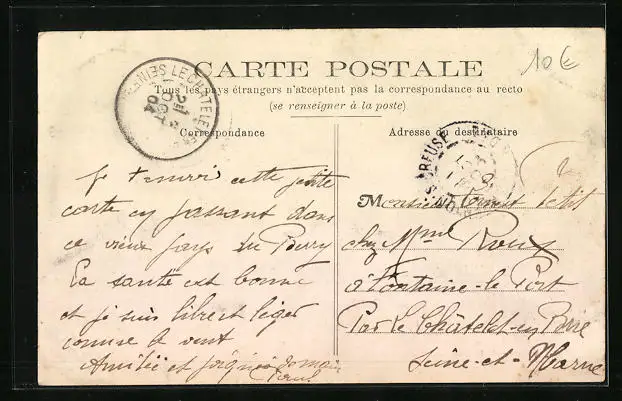 10€
CARTE POSTALE
Tous les pays étrangers n'acceptent pas la correspondance au recto
(se renseigner à la poste)
Correspondance
Adresse du destinataire
LE CHATELET
04
CREUSE
Je t'envoi cette petite
carte en passant dans
ce vieux pays du Berry
La santé est bonne
et je suis libre et léger
comme le vent
Amitié et
Monsieur Ernest Petit
chez Mme Roux
à Fontaine-le Port
Par Le Châtelet-en Brie
Seine-et-Marne